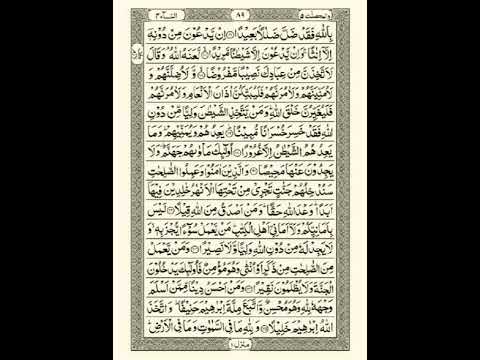 والمحصنت ٥ ٨٩ النسآء ٤
بِاللّٰهِ فَقَدْ ضَلَّ ضَلٰلًاۢ بَعِيْدًا ۝ اِنْ يَّدْعُوْنَ مِنْ دُوْنِهٖٓ
اِلَّآ اِنٰثًا ۚ وَاِنْ يَّدْعُوْنَ اِلَّا شَيْطٰنًا مَّرِيْدًا ۝ لَّعَنَهُ اللّٰهُ ۘ وَقَالَ
لَاَتَّخِذَنَّ مِنْ عِبَادِكَ نَصِيْبًا مَّفْرُوْضًا ۝ وَّلَاُضِلَّنَّهُمْ وَ
لَاُمَنِّيَنَّهُمْ وَلَاٰمُرَنَّهُمْ فَلَيُبَتِّكُنَّ اٰذَانَ الْاَنْعَامِ وَلَاٰمُرَنَّهُمْ
فَلَيُغَيِّرُنَّ خَلْقَ اللّٰهِ ۚ وَمَنْ يَّتَّخِذِ الشَّيْطٰنَ وَلِيًّا مِّنْ دُوْنِ
اللّٰهِ فَقَدْ خَسِرَ خُسْرَانًا مُّبِيْنًا ۝ يَعِدُهُمْ وَيُمَنِّيْهِمْ ۚ وَمَا
يَعِدُهُمُ الشَّيْطٰنُ اِلَّا غُرُوْرًا ۝ اُولٰٓئِكَ مَاْوٰىهُمْ جَهَنَّمُ ۚ وَلَا
يَجِدُوْنَ عَنْهَا مَحِيْصًا ۝ وَالَّذِيْنَ اٰمَنُوْا وَعَمِلُوا الصّٰلِحٰتِ
سَنُدْخِلُهُمْ جَنّٰتٍ تَجْرِيْ مِنْ تَحْتِهَا الْاَنْهٰرُ خٰلِدِيْنَ فِيْهَآ
اَبَدًا ۚ وَعْدَ اللّٰهِ حَقًّا ۚ وَمَنْ اَصْدَقُ مِنَ اللّٰهِ قِيْلًا ۝ لَيْسَ
بِاَمَانِيِّكُمْ وَلَآ اَمَانِيِّ اَهْلِ الْكِتٰبِ ۚ مَنْ يَّعْمَلْ سُوْٓءًا يُّجْزَ بِهٖ ۙ وَ
لَا يَجِدْ لَهٗ مِنْ دُوْنِ اللّٰهِ وَلِيًّا وَّلَا نَصِيْرًا ۝ وَمَنْ يَّعْمَلْ
مِنَ الصّٰلِحٰتِ مِنْ ذَكَرٍ اَوْ اُنْثٰى وَهُوَ مُؤْمِنٌ فَاُولٰٓئِكَ يَدْخُلُوْنَ
الْجَنَّةَ وَلَا يُظْلَمُوْنَ نَقِيْرًا ۝ وَمَنْ اَحْسَنُ دِيْنًا مِّمَّنْ اَسْلَمَ
وَجْهَهٗ لِلّٰهِ وَهُوَ مُحْسِنٌ وَّاتَّبَعَ مِلَّةَ اِبْرٰهِيْمَ حَنِيْفًا ۚ وَاتَّخَذَ
اللّٰهُ اِبْرٰهِيْمَ خَلِيْلًا ۝ وَلِلّٰهِ مَا فِي السَّمٰوٰتِ وَمَا فِي الْاَرْضِ ۚ
منزل ١